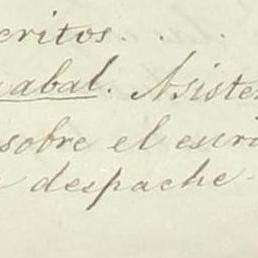 eritos. . .
abal. Asiste
sobre el escri
despache